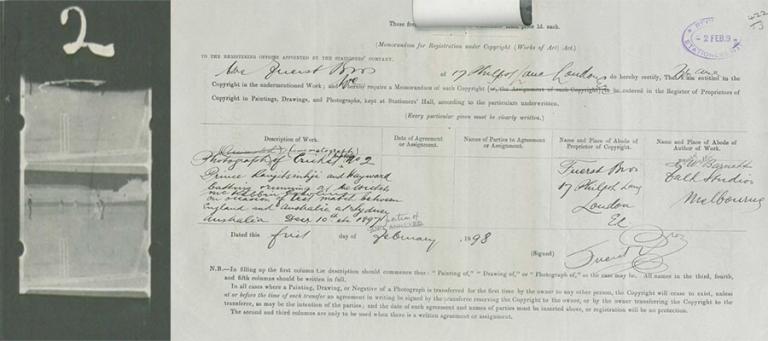 2
These for
price 1d. each.
(Memorandum for Registration under Copyright (Works of Art) Act.)
2 FEB.9
STATIONERS
TO THE REGISTERING OFFICER APPOINTED BY THE STATIONERS' COMPANY.
We Fuerst Bros of 17 Philpot Lane London do hereby certify, That we are entitled to the
Copyright in the undermentioned Work; and We hereby require a Memorandum of such Copyright (or, the Assignment of such Copyright) to be entered in the Register of Proprietors
of Copyright in Paintings, Drawings, and Photographs, kept at Stationers' Hall, according to the particulars underwritten.
(Every particular given must be clearly written.)
Description of Work.
Date of Agreement or Assignment.
Names of Parties to Agreement or Assignment.
Name and Place of Abode of Proprietor of Copyright.
Name and Place of Abode of Author of Work.
Photograph of Cricket No 2
Prince Ranjitsinhji and Hayward
batting & running at the wickets
on occasion of test match between
England and Australia at Sydney
Australia Decr 10th 1897
Fuerst Bros
17 Philpot Lane
London
EC
Barnett
Falk Studios
Melbourne
Dated this first day of February 1898
(Signed) Fuerst Bros
N.B.—In filling up the first column the description should commence thus: "Painting of," "Drawing of," or "Photograph of," as the case may be. All names in the third, fourth,
and fifth columns should be written in full.
In all cases where a Painting, Drawing, or Negative of a Photograph is transferred for the first time by the owner to any other person, the Copyright will cease to exist, unless
at or before the time of such transfer an agreement in writing be signed by the transferee reserving the Copyright to the owner, or by the owner transferring the Copyright to the
transferee, as may be the intention of the parties; and the date of such agreement and names of parties must be inserted above, or registration will be no protection.
The second and third columns are only to be used when there is a written agreement or assignment.